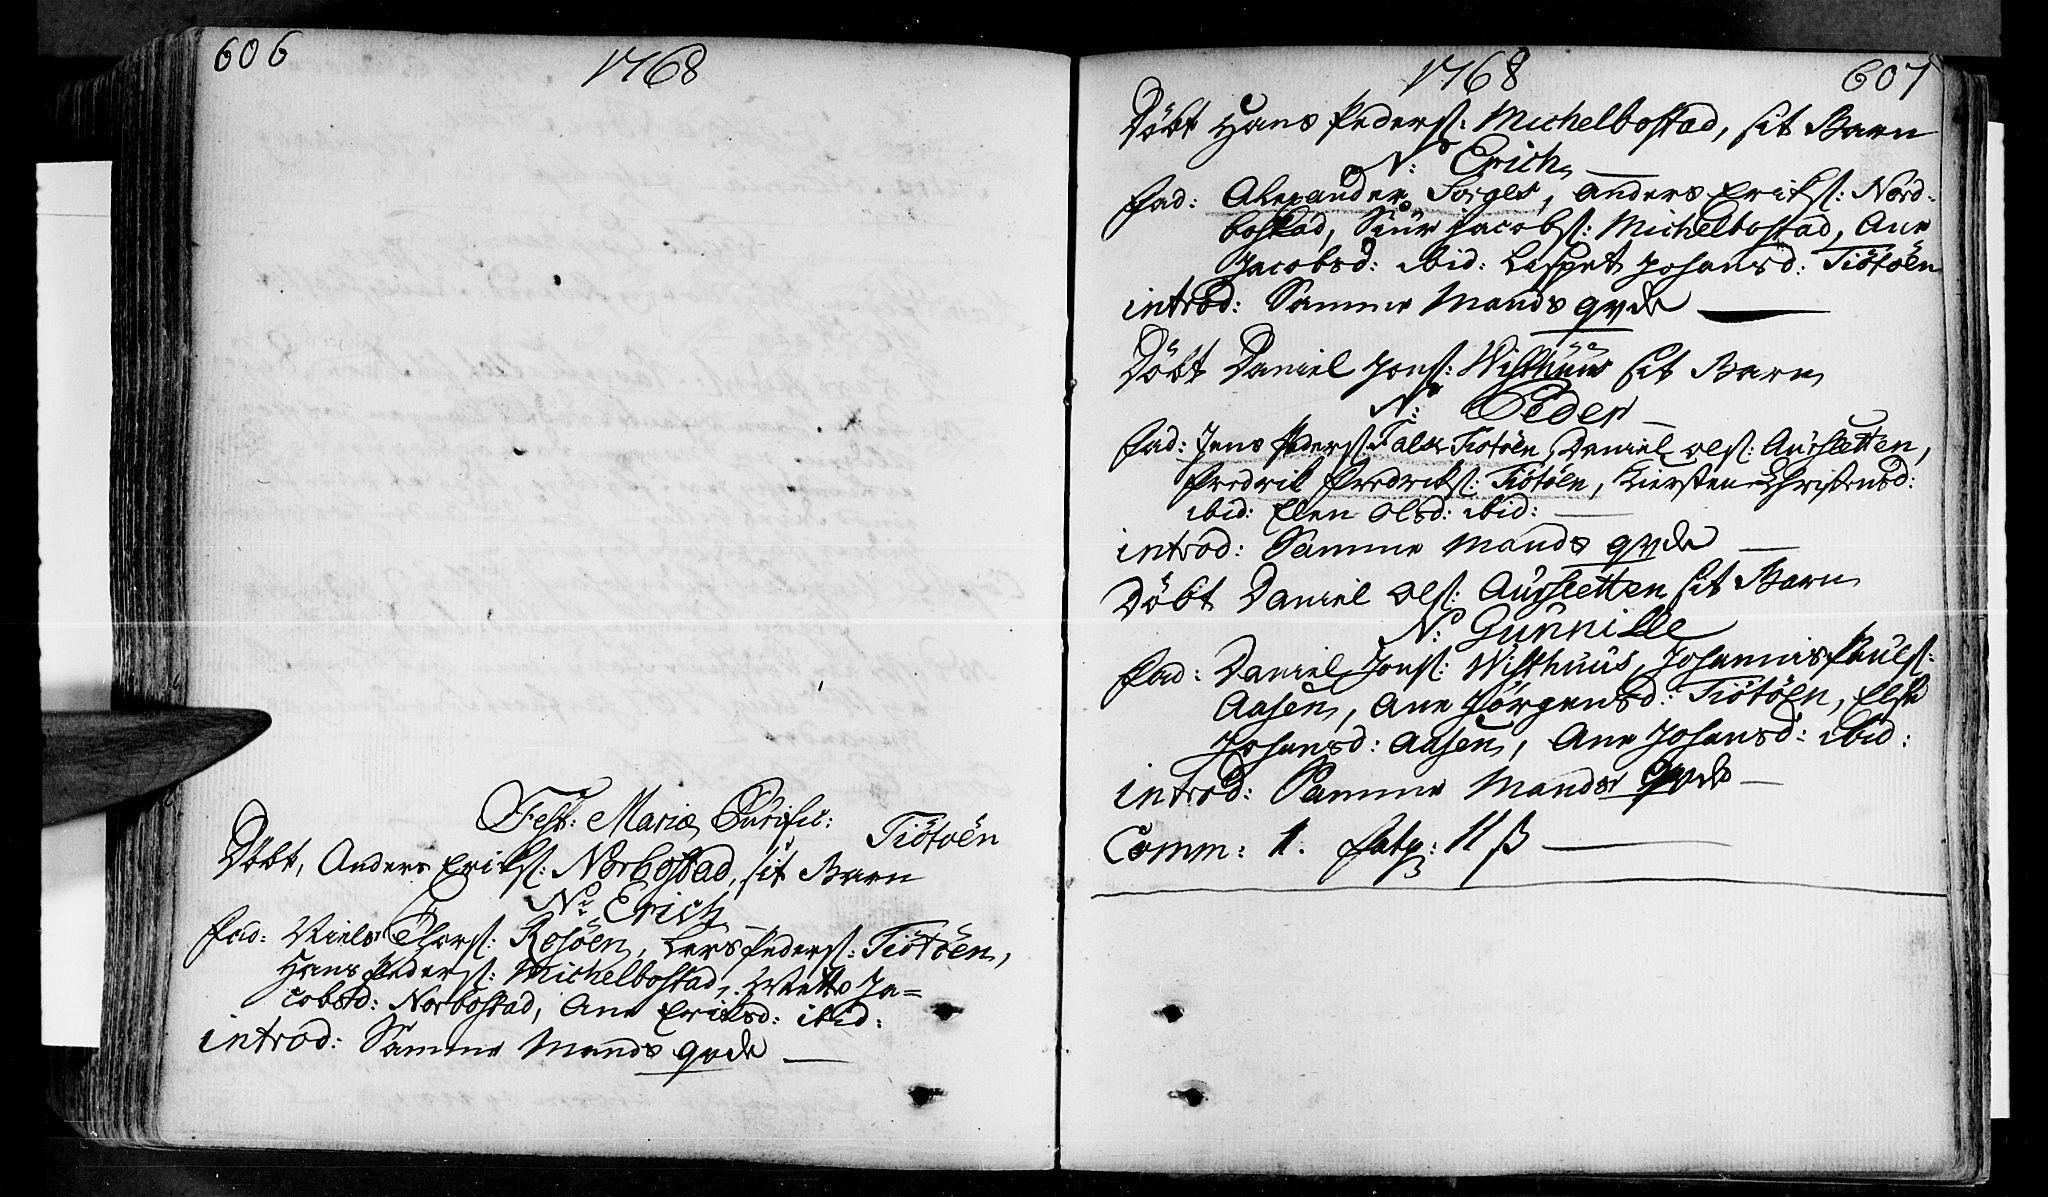 606
1768
Fest: Mariæ Purific:
Tiötöen
Döbt, Anders Eriks: Norbostad, sit Barn
No Erich
Fad: Niels Thors: Rosöen, Lars Peders: Tiötöen,
Hans Peders: Michelbostad, Mette Ja=
cobsd: Norbostad, Ane Eriksd: ibid:
introd: Samme Mands qvde
1768
607
Döbt Hans Peders: Michelbostad, sit Barn
No: Erich
Fad: Alexander Sorges, Anders Eriks: Nord-
bostad, Siur Jacobs: Michelbostad, Ane
Jacobsd: ibid: Lispet Johansd: Tiötöen
introd: Samme Mands qvde
Döbt Daniel Jons: Wisthuus sit Barn
No: Peder
Fad: Jens Peders: Falch Tiötöen, Daniel Ols: Aursletten,
Fredrik Fredriks: Tiötöen, Kiersten Christensd:
ibid: Elen Olsd: ibid:
introd: Samme Mands qvde
Döbt Daniel Ols: Aursletten sit Barn
No: Gunnille
Fad: Daniel Jons: Wisthuus, Johannis Pauls:
Aasen, Ane Jørgensd: Tiötöen, Else
Johansd: Aasen, Ane Johansd: ibid:
introd: Samme Mands qvde
Comm: 1. Patp: 11 ß